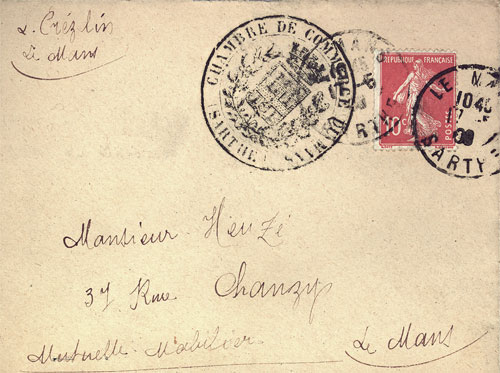 L. Crézlin
Le Mans
CHAMBRE DE COMMERCE DU MANS
(SARTHE)
REPUBLIQUE FRANÇAISE
10c
POSTES
LE MANS
1040
SARTHE
Monsieur Heuzé
37 Rue Chanzy
Mutuelle Mobilière
Le Mans